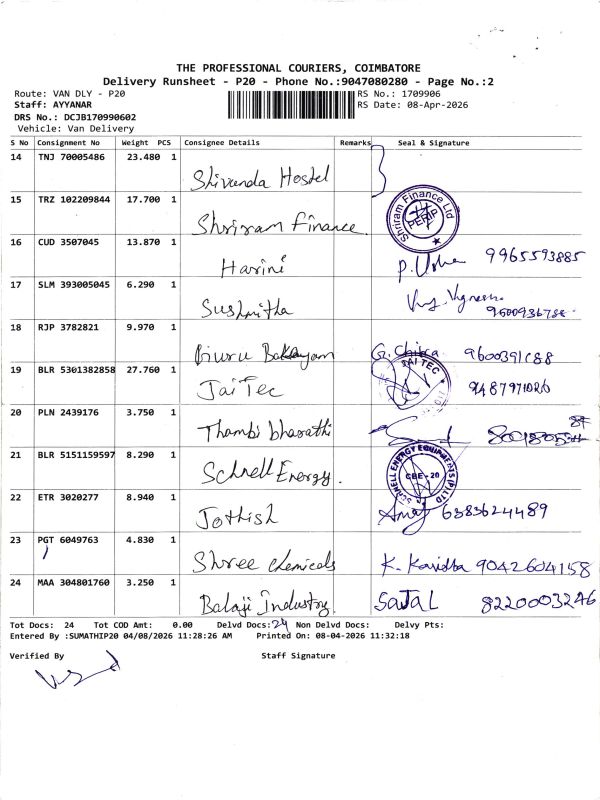 THE PROFESSIONAL COURIERS, COIMBATORE
Delivery Runsheet - P20 - Phone No.:9047080280 - Page No.:2
Route: VAN DLY - P20 RS No.: 1709906
Staff: AYYANAR RS Date: 08-Apr-2026
DRS No.: DCJB170990602
Vehicle: Van Delivery
S No Consignment No Weight PCS Consignee Details Remarks Seal & Signature
14 TNJ 70005486 23.480 1
Shivanda Hostel
15 TRZ 102209844 17.700 1
Shriram Finance Shriram Finance Ltd
16 CUD 3507045 13.870 1
Harini P. Usha 9965593885
17 SLM 393005045 6.290 1
Sushmitha
18 RJP 3782821 9.970 1
G. Chitra 9600391688
19 BLR 5301382858 27.760 1
JaiTec JAI TEC
20 PLN 2439176 3.750 1
Thambi bharathi
21 BLR 5151159597 8.290 1
Schnell Energy. SCHNELL ENERGY EQUIPMENTS (P) LTD CBE-20
22 ETR 3020277 8.940 1
Jothish 6383624489
23 PGT 6049763 4.830 1
Shree chemicals K. Kavidha 9042604158
24 MAA 304801760 3.250 1
Balaji Industry. SAJAL 8220003246
Tot Docs: 24 Tot COD Amt: 0.00 Delvd Docs: 24 Non Delvd Docs: Delvy Pts:
Entered By :SUMATHIP20 04/08/2026 11:28:26 AM Printed On: 08-04-2026 11:32:18
Verified By Staff Signature